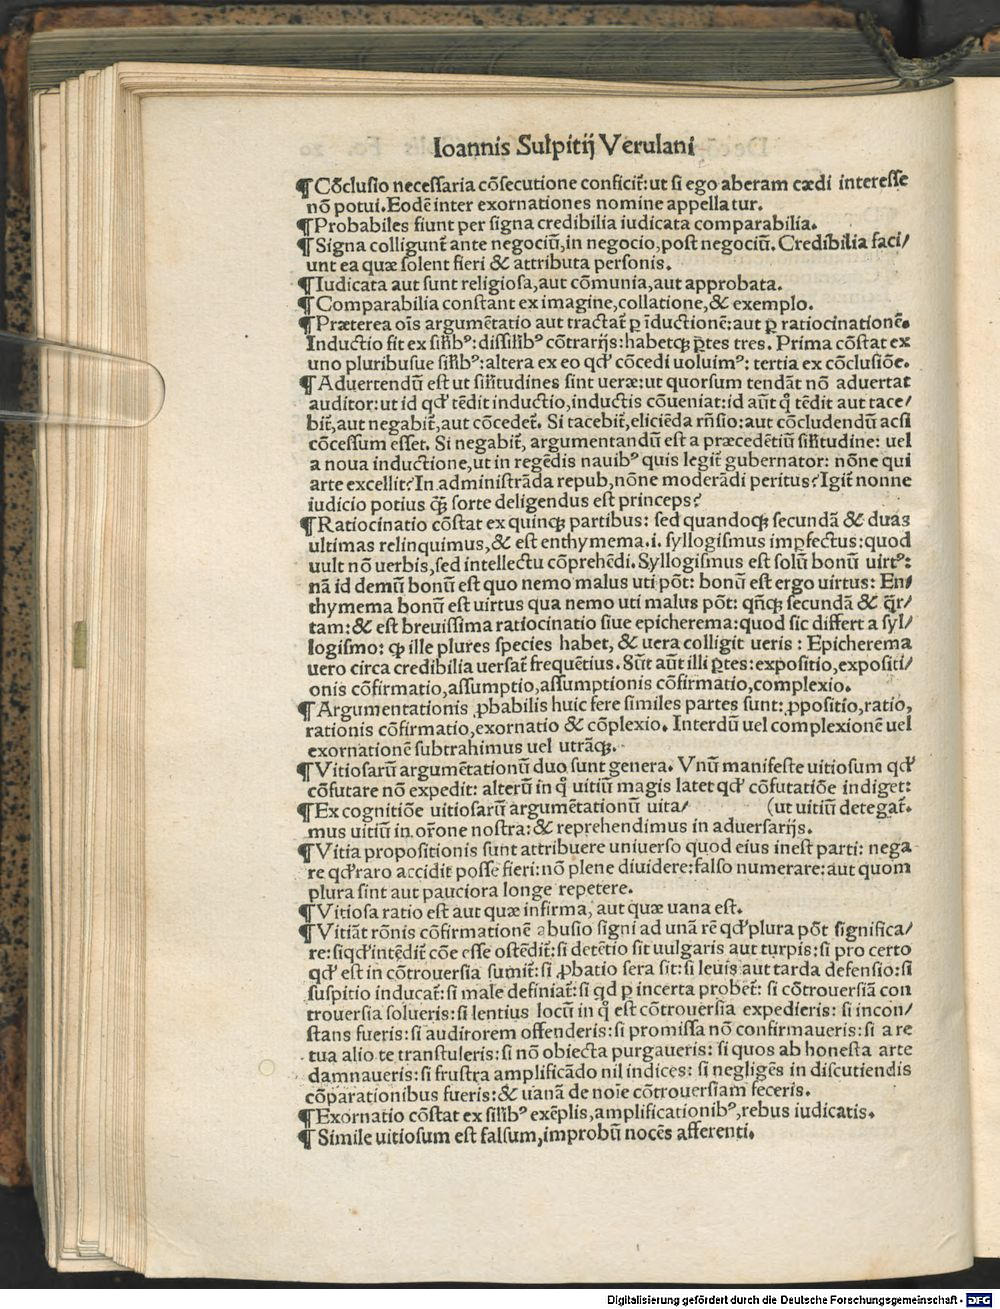 Ioannis Sulpitij Verulani
¶ Cōclusio necessaria cōsecutione conficit̃: ut si ego aberam cædi interesse
nō potui. Eodē inter exornationes nomine appellatur.
¶ Probabiles fiunt per signa credibilia iudicata comparabilia.
¶ Signa colligunt̃ ante negociū, in negocio, post negociū. Credibilia faci/
unt ea quæ solent fieri & attributa personis.
¶ Iudicata aut sunt religiosa, aut cōmunia, aut approbata.
¶ Comparabilia constant ex imagine, collatione, & exemplo.
¶ Præterea oīs argumētatio aut tractat̃ ꝑ īductionē: aut ꝑ ratiocinationē.
Inductio fit ex sił̃ibꝰ: dissił̃ibꝰ cōtrarijs: habetqꝫ ꝑtes tres. Prima cōstat ex
uno pluribusue sił̃ibꝰ: altera ex eo qđ cōcedi uoluimꝰ: tertia ex cōclusiōe.
¶ Aduertendū est ut sił̃itudines sint ueræ: ut quorsum tendāt nō aduertat
auditor: ut id qđ tēdit inductio, inductis cōueniat: id aūt q̊ tēdit aut tace/
bit̃, aut negabit̃, aut cōcedet̃. Si tacebit̃, eliciēda rñsio: aut cōcludendū acsi
cōcessum esset. Si negabit̃, argumentandū est a præcedētiū sił̃itudine: uel
a noua inductione, ut in regēdis nauibꝰ quis legit̃ gubernator: nōne qui
arte excellit? In administrāda repub, nōne moderādi peritus? Igit̃ nonne
iudicio potius q̄ꝫ sorte deligendus est princeps?
¶ Ratiocinatio cōstat ex quinqꝫ partibus: sed quandoqꝫ secundā & duas
ultimas relinquimus, & est enthymema .i. syllogismus imꝑfectus: quod
uult nō uerbis, sed intellectu cōprehēdi. Syllogismus est solū bonū uirtꝰ:
nā id demū bonū est quo nemo malus uti pōt: bonū est ergo uirtus: En/
thymema bonū est uirtus qua nemo uti malus pōt: qñqꝫ secundā & q̄r/
tam: & est breuissima ratiocinatio siue epicherema: quod sic differt a syl/
logismo: ꝙ ille plures species habet, & uera colligit ueris : Epicherema
uero circa credibilia uersat̃ frequētius. Sūt aūt illi ꝑtes: expositio, expositi/
onis cōfirmatio, assumptio, assumptionis cōfirmatio, complexio.
¶ Argumentationis ꝓbabilis huic fere similes partes sunt: ꝓpositio, ratio,
rationis cōfirmatio, exornatio & cōplexio. Interdū uel complexionē uel
exornationē subtrahimus uel utrāqꝫ.
¶ Vitiosarū argumētationū duo sunt genera. Vnū manifeste uitiosum qđ
cōfutare nō expedit: alterū in q̊ uitiū magis latet qđ cōfutatiōe indiget:
¶ Ex cognitiōe uitiosarū argumētationū uita/ (ut uitiū detegat̃.
mus uitiū in or̄one nostra: & reprehendimus in aduersarijs.
¶ Vitia propositionis sunt attribuere uniuerso quod eius inest parti: nega
re qđ raro accidit posse fieri: nō plene diuidere: falso numerare: aut quom
plura sint aut pauciora longe repetere.
¶ Vitiosa ratio est aut quæ infirma, aut quæ uana est.
¶ Vitiāt rōnis cōfirmationē abusio signi ad unā rē qđ plura pōt significa/
re: si qđ intēdit̃ cōe esse ostēdit̃: si detētio sit uulgaris aut turpis: si pro certo
qđ est in cōtrouersia sumit̃: si ꝓbatio sera sit: si leuis aut tarda defensio: si
suspitio inducat̃: si male definiat̃: si qd ꝑ incerta probet̃: si cōtrouersiā con
trouersia solueris: si lentius locū in q̊ est cōtrouersia expedieris: si incon/
stans fueris: si auditorem offenderis: si promissa nō confirmaueris: si a re
tua alio te transtuleris: si nō obiecta purgaueris: si quos ab honesta arte
damnaueris: si frustra amplificādo nil indices: si negligēs in discutiendis
cōparationibus fueris: & uanā de noīe cōtrouersiam feceris.
¶ Exornatio cōstat ex sił̃ibꝰ exēplis, amplificationibꝰ, rebus iudicatis.
¶ Simile uitiosum est falsum, improbū nocēs afferenti.
Digitalisierung gefördert durch die Deutsche Forschungsgemeinschaft - DFG